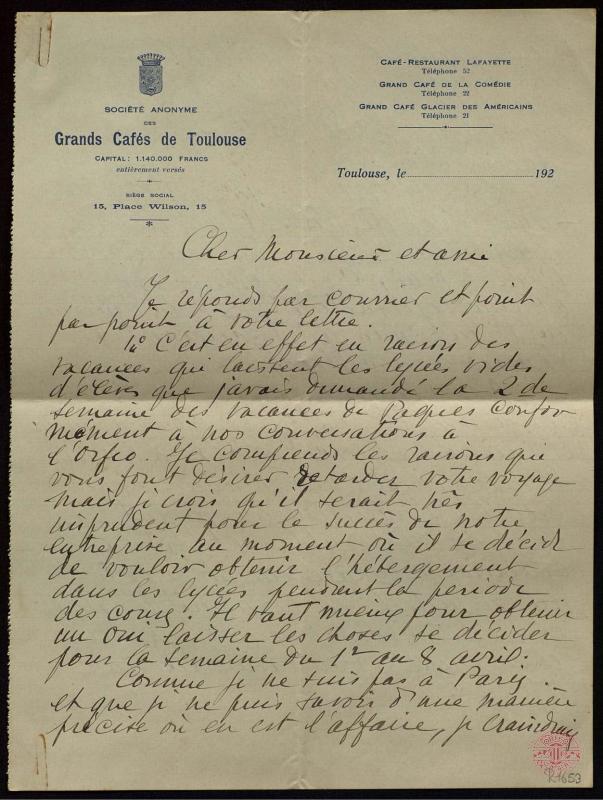 SOCIÉTÉ ANONYME
DES
Grands Cafés de Toulouse
CAPITAL: 1.140.000 FRANCS
entièrement versés
SIÈGE SOCIAL
15, Place Wilson, 15
CAFÉ-RESTAURANT LAFAYETTE
Téléphone 52
GRAND CAFÉ DE LA COMÉDIE
Téléphone 22
GRAND CAFÉ GLACIER DES AMÉRICAINS
Téléphone 21
Toulouse, le 192
Cher Monsieur et ami
Je réponds par courrier et point
par point à votre lettre.
1º C'est en effet en raison des
vacances qui laissent les lycées vides
d'élèves que j'avais demandé la 2 de
semaine des vacances de Pâques confor
mément à nos conversations à
l'Orfeo. Je comprends les raisons que
vous font désirer retarder votre voyage
mais je crois qu'il serait très
imprudent pour le succès de notre
entreprise au moment où il se décide
de vouloir obtenir l'hébergement
dans les lycées pendant la période
des cours. Il vaut mieux pour obtenir
un oui laisser les choses se décider
pour la semaine du 1er au 8 avril.
Comme je ne suis pas à Paris
et que je ne puis savoir d'une manière
précise où en est l'affaire, je craindrais
R.1653